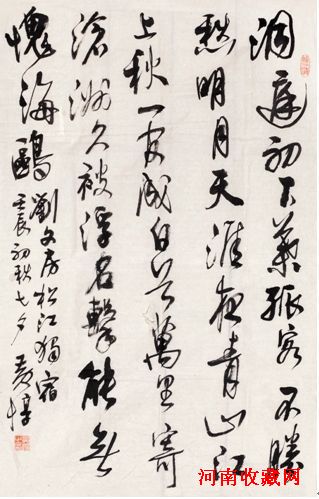 洞庭初下葉孤客不勝
愁明月天涯夜青山江
上秋一官成白首萬里寄
滄洲久被浮名繫能無
愧海鷗
劉文房松江獨宿
壬辰初秋七夕
河南收藏网